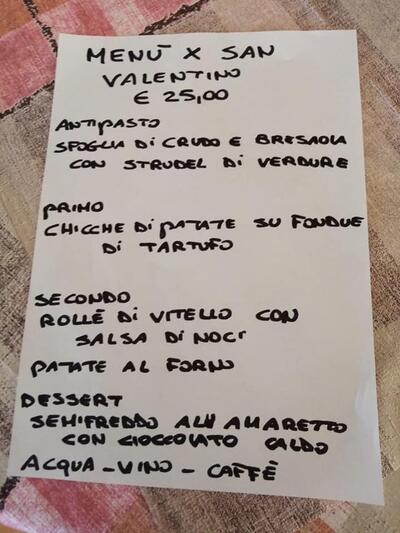 MENÙ X SAN
VALENTINO
€ 25,00
ANTIPASTO
SFOGLIA DI CRUDO E BRESAOLA
CON STRUDEL DI VERDURE
PRIMO
CHICCHE DI PATATE SU FONDUE
DI TARTUFO
SECONDO
ROLLÈ DI VITELLO CON
SALSA DI NOCI
PATATE AL FORNO
DESSERT
SEMIFREDDO ALL'AMARETTO
CON CIOCCOLATO CALDO
ACQUA - VINO - CAFFÈ